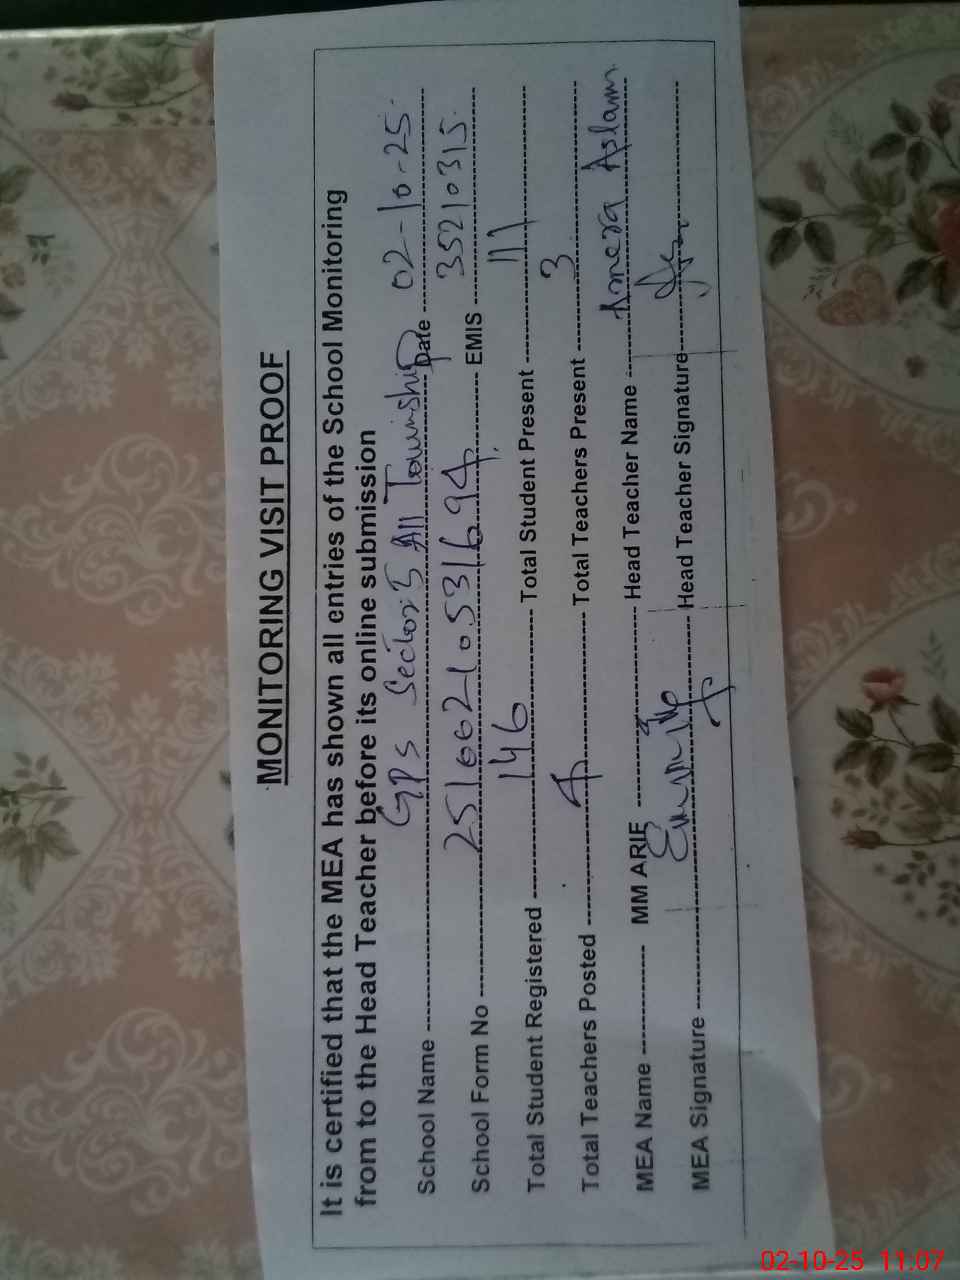 MONITORING VISIT PROOF
It is certified that the MEA has shown all entries of the School Monitoring
from to the Head Teacher before its online submission
School Name GPS Sector 3 AII Township Date 02-10-25
School Form No 25166210531694 EMIS 35210315
Total Student Registered 146 Total Student Present 111
Total Teachers Posted 4 Total Teachers Present 3
MEA Name MM ARIF Head Teacher Name Aslam
MEA Signature Head Teacher Signature
02-10-25 11:07